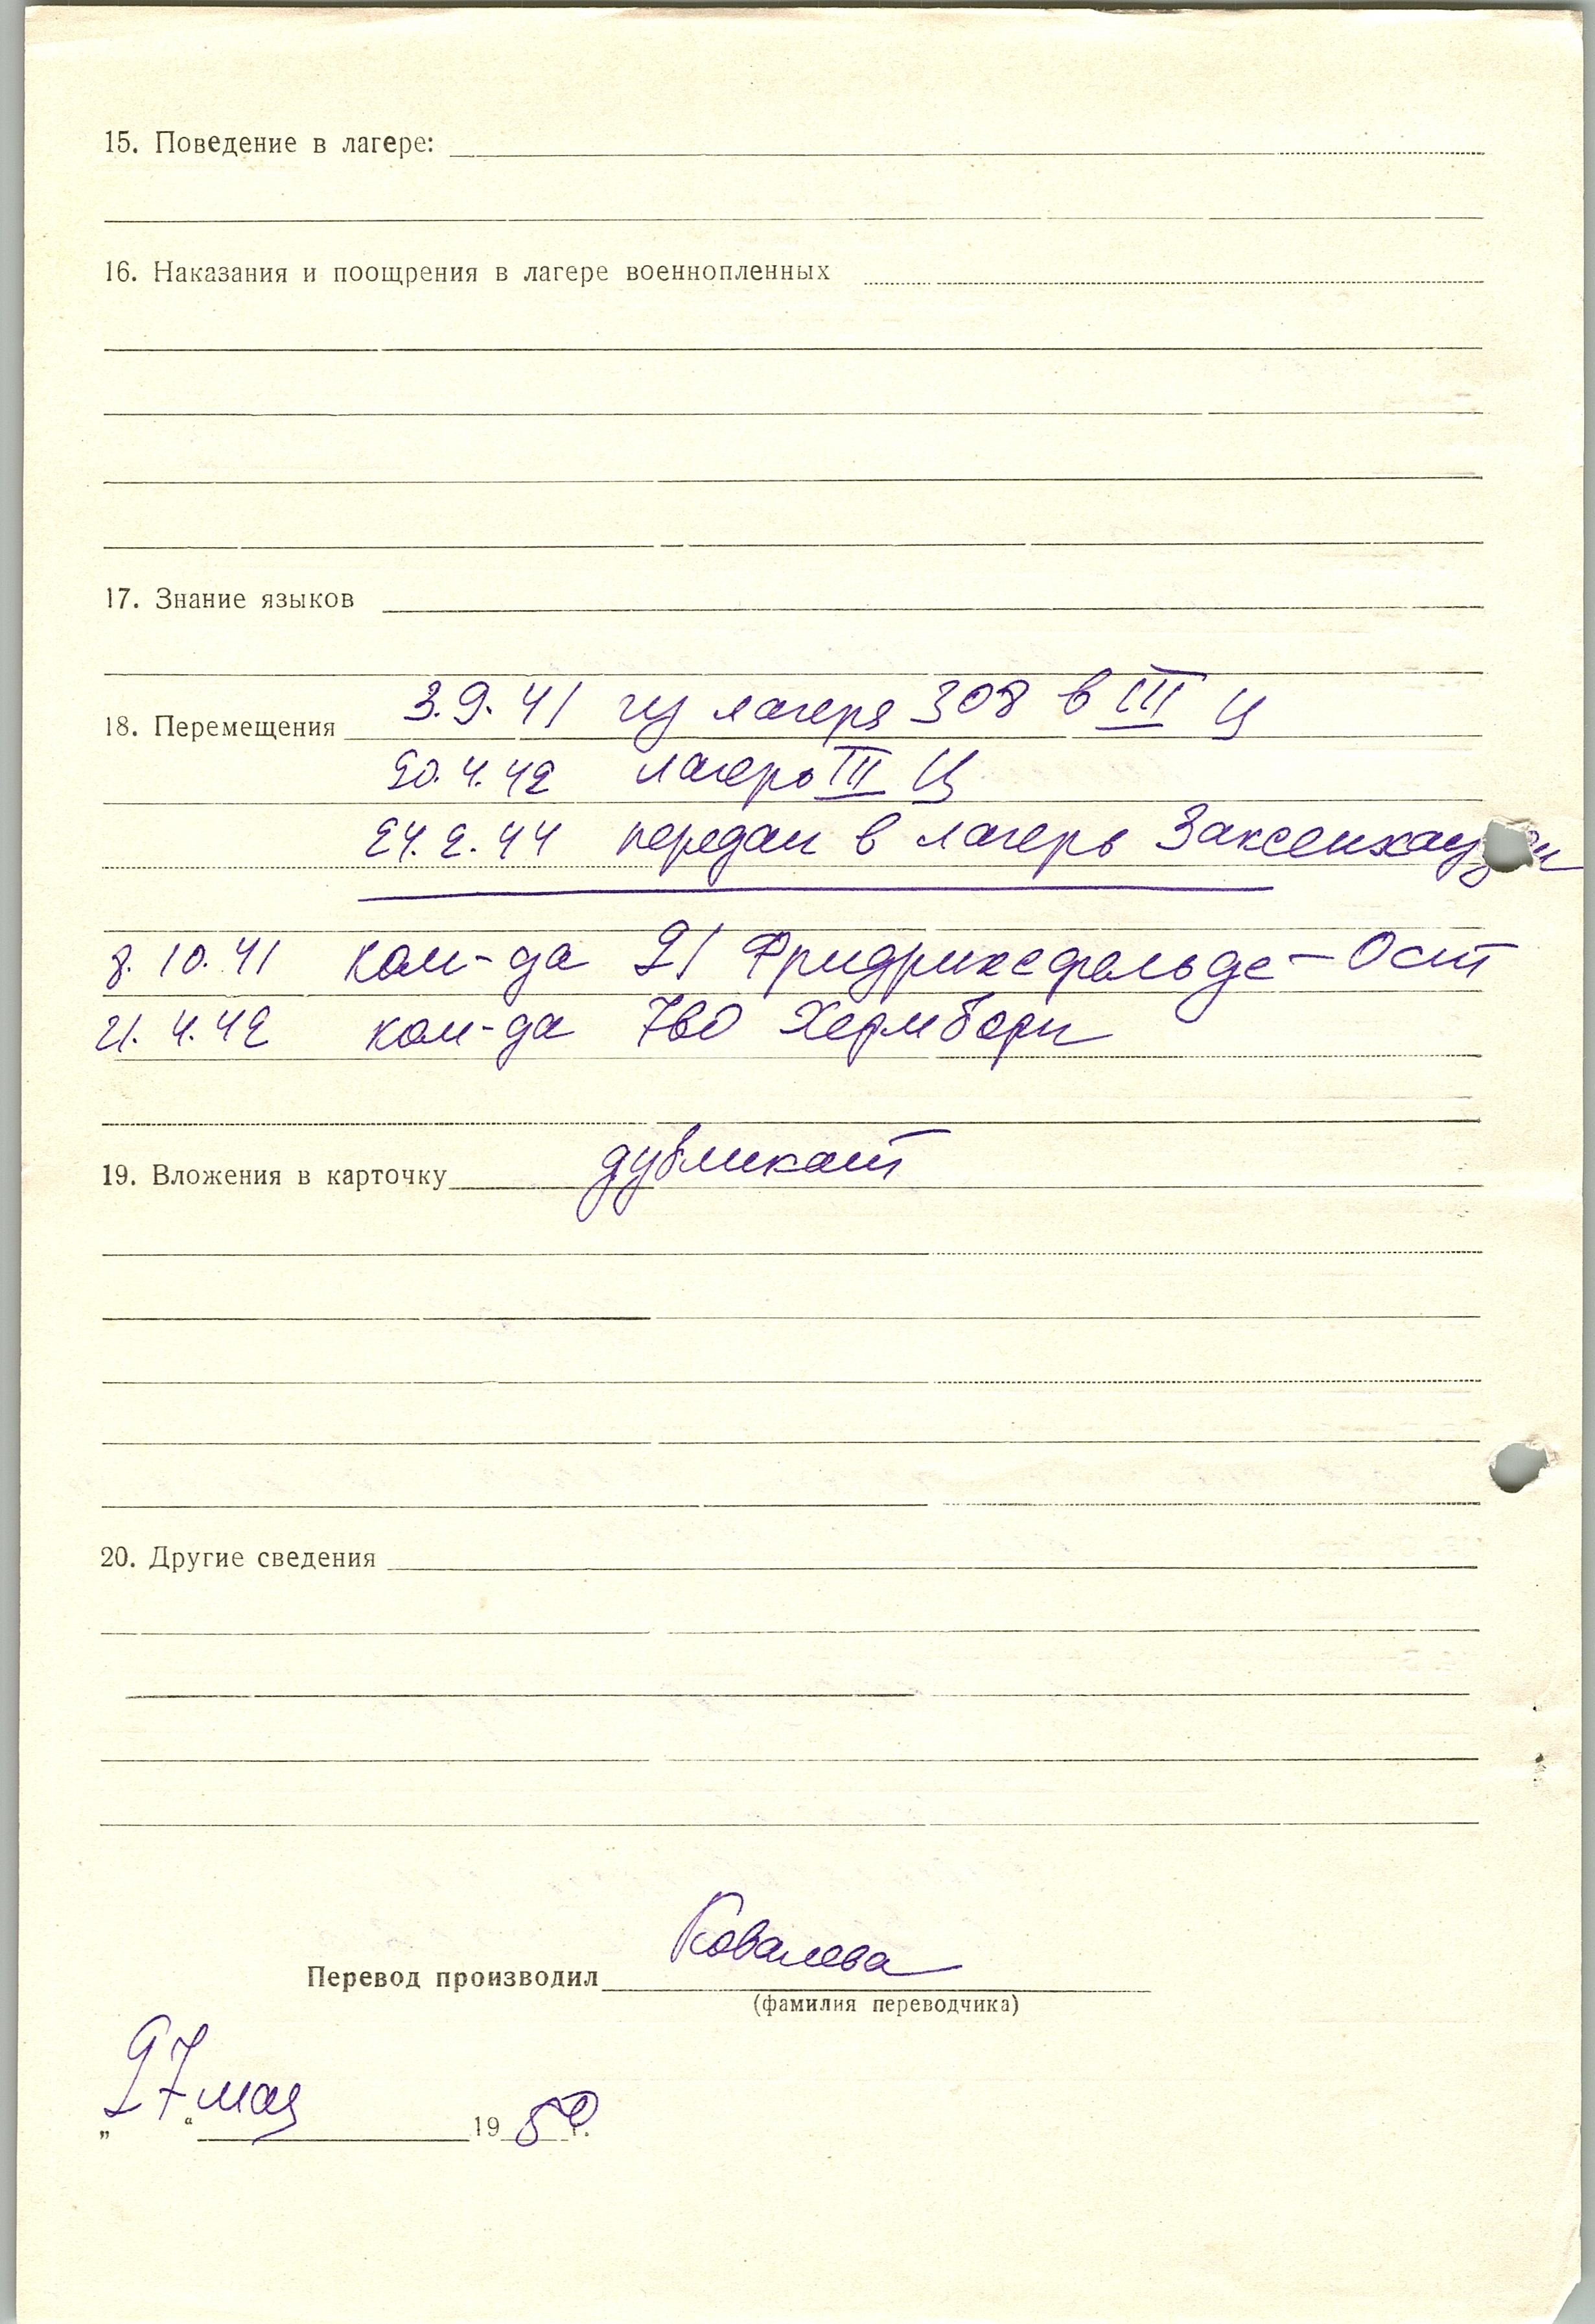 15. Поведение в лагере:
16. Наказания и поощрения в лагере военнопленных
17. Знание языков
18. Перемещения 3.9.41 из лагеря 308 в III Ц
20.4.42 лагерь III Ц
24.2.44 передан в лагерь Заксенхаузен
8.10.41 ком-да 21 Фридрихсфельде-Ост
21.4.42 ком-да
19. Вложения в карточку дубликат
20. Другие сведения
Перевод производил Ковалева
(фамилия переводчика)
„27“ мая 1950 г.